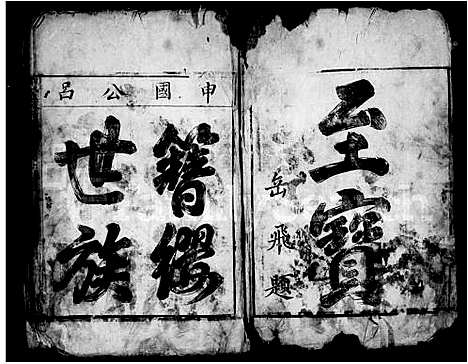 至寶
岳飛題
申國公呂
簪纓
世族